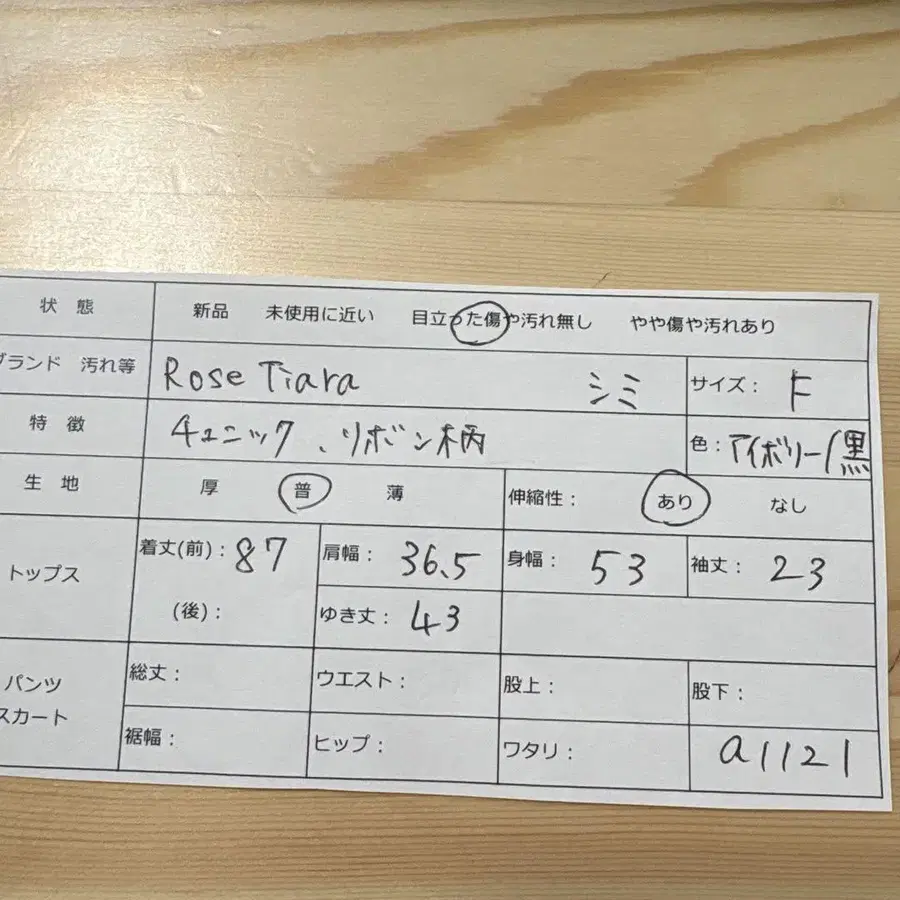 状 態 新品 未使用に近い 目立った傷や汚れ無し やや傷や汚れあり
ブランド 汚れ等 Rose Tiara シミ サイズ: F
特 徴 チュニック、リボン柄 色:アイボリー/黒
生 地 厚 普 薄 伸縮性: あり なし
トップス 着丈(前): 87 肩幅: 36.5 身幅: 53 袖丈: 23
(後): ゆき丈: 43
パンツ 総丈: ウエスト: 股上: 股下:
スカート 裾幅: ヒップ: ワタリ: a1121